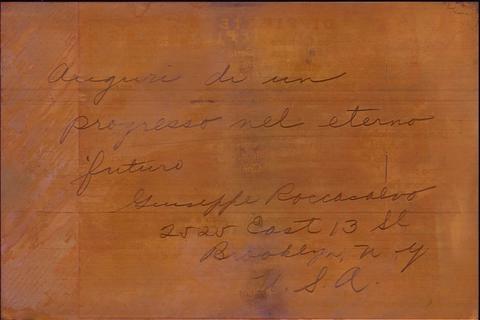 Auguri di un
progresso nel eterno
futuro
Giuseppe Roccasalvo
2020 East 13 St
Brooklyn, N.Y
U.S.A.